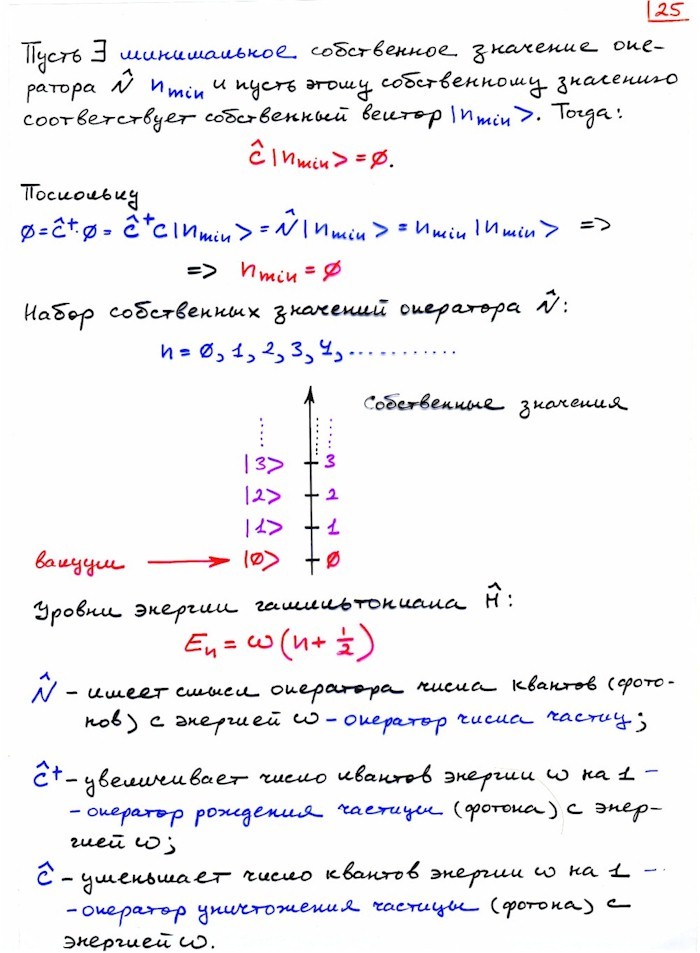 125
Пусть ∃ минимальное собственное значение опе-
ратора N̂ n_min и пусть этому собственному значению
соответствует собственный вектор |n_min>. Тогда:
ĉ|n_min> = ∅.
Поскольку
∅ = ĉ⁺·∅ = ĉ⁺c|n_min> = N̂|n_min> = n_min|n_min> =>
=> n_min = ∅
Набор собственных значений оператора N̂:
n = ∅, 1, 2, 3, 4, ............
Собственные значения
|3> 3
|2> 2
|1> 1
вакуум |∅> ∅
Уровни энергии гамильтониана Ĥ:
E_n = ω(n + 1/2)
N̂ – имеет смысл оператора числа квантов (фото-
нов) с энергией ω – оператор числа частиц;
ĉ⁺ – увеличивает число квантов энергии ω на 1 –
– оператор рождения частицы (фотона) с энер-
гией ω;
ĉ – уменьшает число квантов энергии ω на 1 –
– оператор уничтожения частицы (фотона) с
энергией ω.